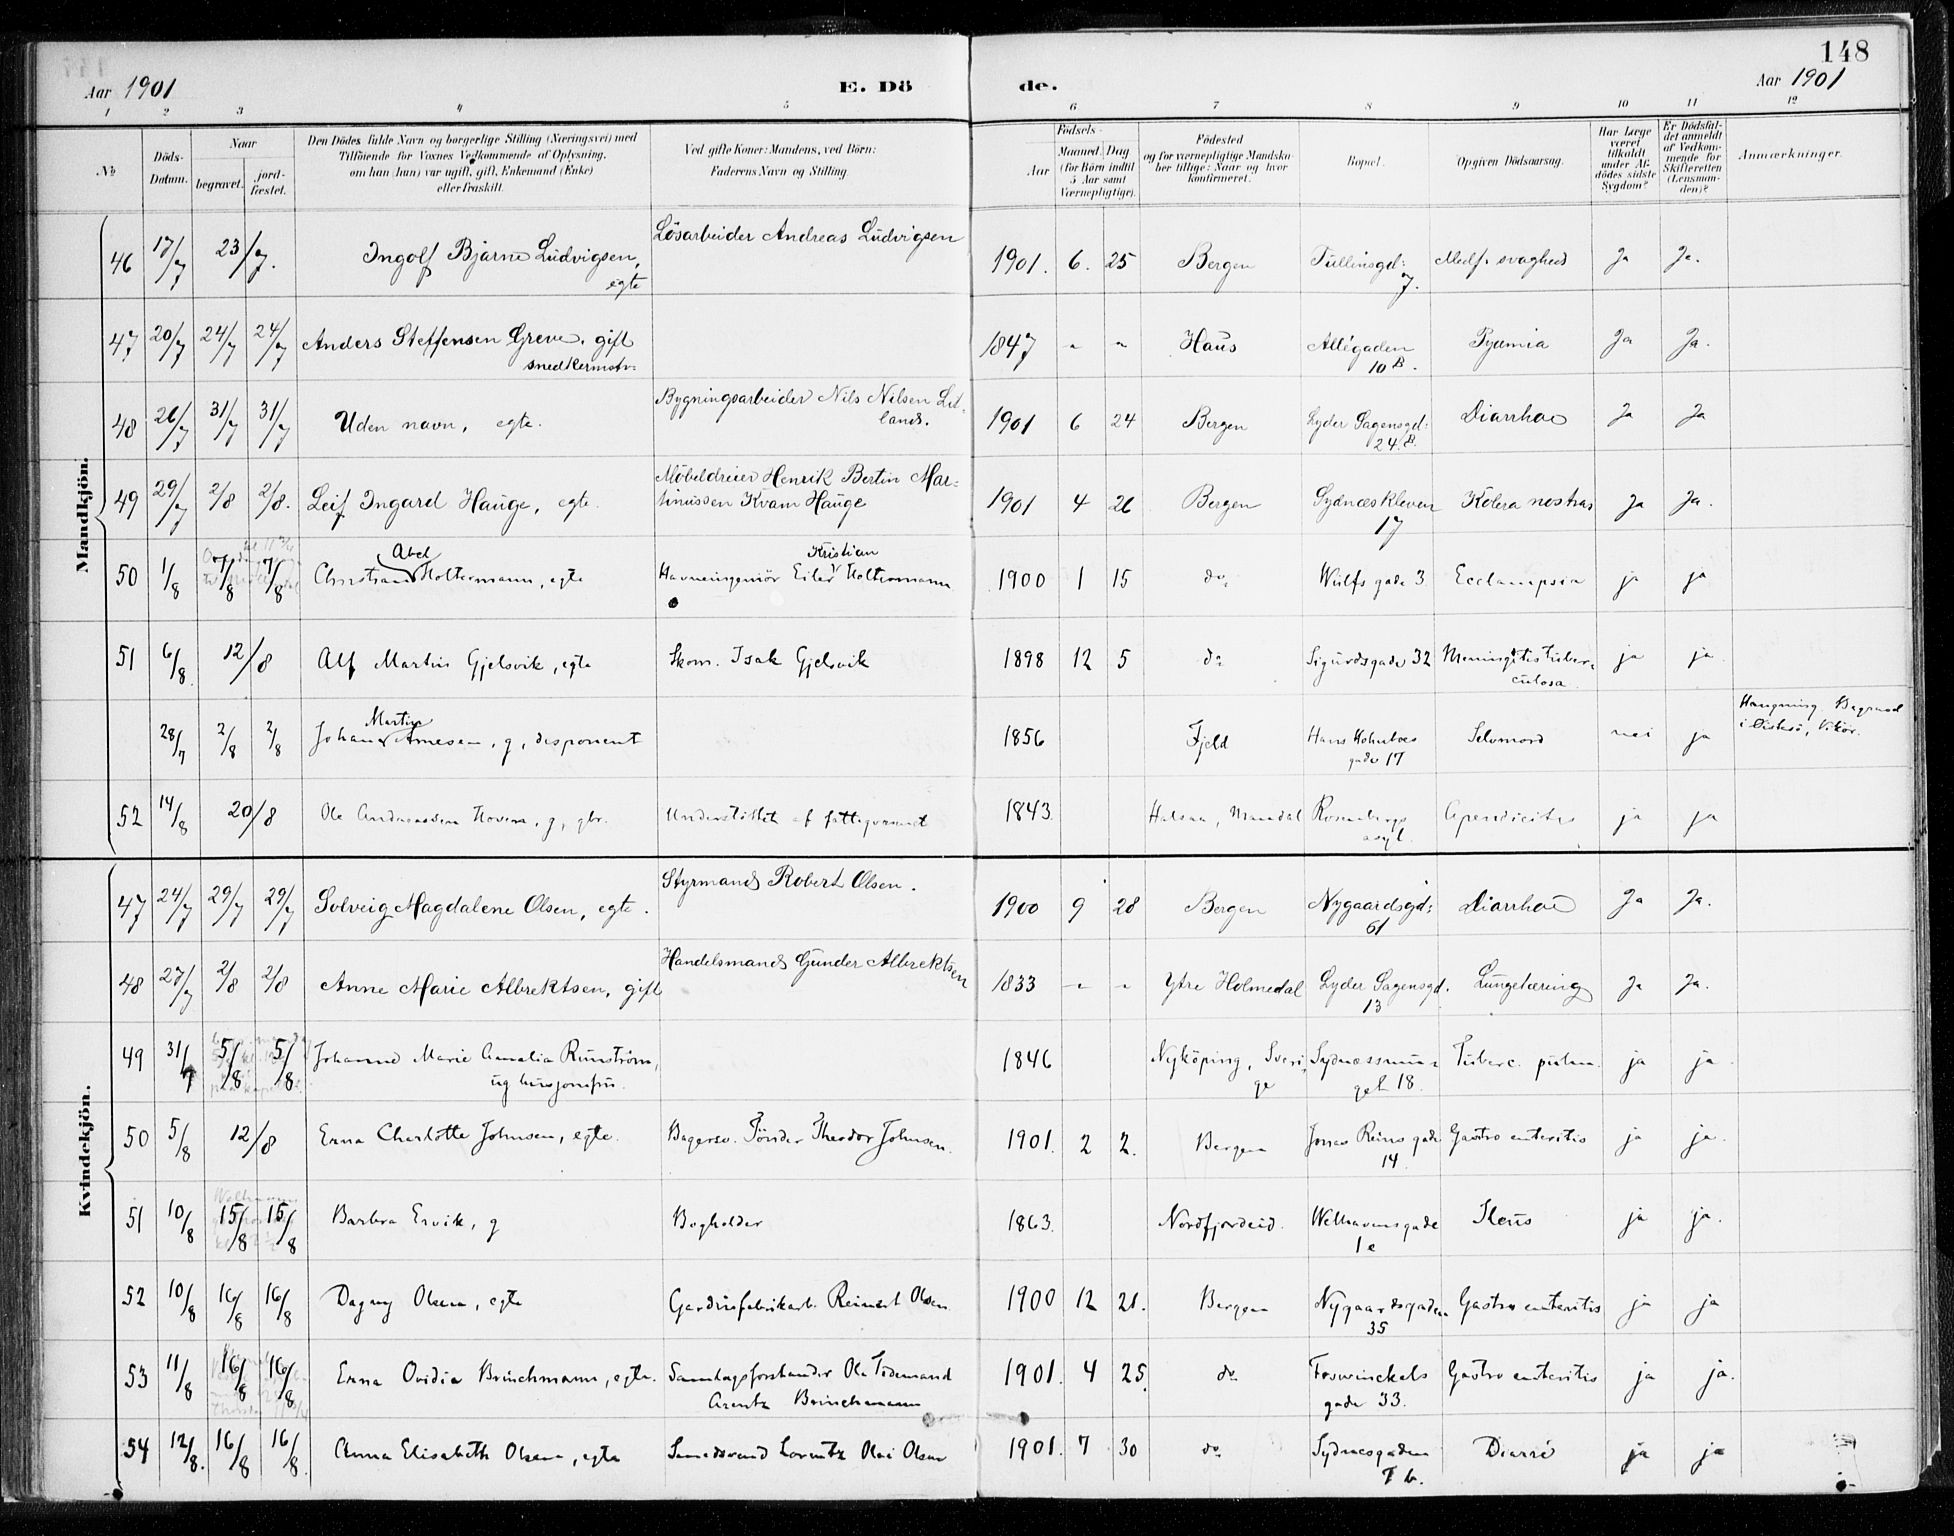 148
Aar 1901 E. Dö de. Aar 1901
1 2 3 4 5 6 7 8 9 10 11 12
№ Döds-Datum. Naar begravet. jord-fæstet. Den Dödes fulde Navn og borgerlige Stilling (Næringsvei) med Tilföiende for Voxnes Vedkommende af Oplysning, om han (hun) var ugift, gift, Enkemand (Enke) eller fraskilt. Ved gifte Koner: Mandens, ved Börn: Faderens Navn og Stilling. Födsels- Aar Maaned. Dag (for Börn indtil 5 Aar samt Værnepligtige). Födested og for værnepligtige Mandska-ber tillige: Naar og hvor konfirmeret. Bopæl. Opgiven Dödsaarsag. Har Læge været tilkaldt under Af-dödes sidste Sygdom? Er Dödsfal-det anmeldt af Vedkom-mende for Skifteretten (Lensman-den)? Anmærkninger.
Mandkjön.
46 17/7 23/7. Ingolf Bjarne Ludvigsen, egte Lösarbeider Andreas Ludvigsen 1901. 6. 25 Bergen Tullinsgd: 7. Medf. svaghed Ja Ja.
47 20/7 24/7 24/7 Anders Steffensen Greve, gift snedkermstr: 1847 " " Haus Allégaden 10 B. Pyæmia Ja Ja.
48 26/7 31/7 31/7 Uden navn, egte. Bygningsarbeider Nils Nilsen Lid-land. 1901 6 24 Bergen Lyder Sagensgd: 24 B. Diarrhoe Ja Ja
49 29/7 2/8 2/8. Leif Ingard Hauge, egte. Möbeldreier Henrik Bertin Mar-tinussen Kvam Hauge 1901 4 26 Bergen Sydnæskleven 17 Kolera nostras Ja Ja.
50 1/8 7/8 7/8 Christian Abel Holtermann, egte Havneingeniör Eiler Kristian Holtermann 1900 1 15 do. Wulfs gade 3. Ecclampsia ja ja
51 6/8. 12/8 Alf Martin Gjelsvik, egte Skom. Isak Gjelsvik 1898 12 5 do Sigurdsgade 32 Meningitis tuber-culosa ja ja
28/7 2/8 2/8 Johan Martin Arnesen, g, disponent 1856 Fjeld Hans Holmboes gade 17 Selvmord nei ja Hængning. Begravet i , Vikör.
52 14/8 20/8 Ole Andreassen Hoven, g, gbr. Understöttet af fattigvæsnet 1843. Halsaa, Mandal Rosenbergs asyl. Apendicitis ja ja
Kvindekjön.
47 24/7 29/7 29/7 Solveig Magdalene Olsen, egte. Styrmand Robert Olsen. 1900 9 28 Bergen Nygaardsgd: 61 Diarrhoe Ja Ja.
48 27/7 2/8 2/8 Anne Marie Albrektsen, gift Handelsmand Gunder Albrektsen 1833 " " Ytre Holmedal Lyder Sagensgd. 13 Lungetæring Ja Ja.
49 31/7 5/8 5/8 Johanne Marie Amalia Runström, ug husjomfru. 1846 Nyköping, Sveri-ge Sydnæssmu-get 18. Tuberc. pulm. ja ja
50 5/8 12/8 Erna Charlotte Johnsen, egte. Bagersv. Tönder Theodor Johnsen. 1901. 2 2. Bergen Jonas Reins gade 14. Gastro enteritis ja ja.
51 10/8 15/8 15/8 Barbra Ervik, g Bogholder 1863. Nordfjordeid. Welhavensgade 1 e Ileus ja ja.
52 10/8 16/8 16/8 Dagny Olsen, egte Gardinfabrikarb. Reinert Olsen 1900 12 21. Bergen Nygaardsgaden 35 Gastro enteritis ja ja
53 11/8 16/8 16/8 Erna Ovidia Brinchmann, egte. Samlagsforstander Ole Tidemand Arentz Brinchmann 1901. 4 25. do Fosswinckels gade 33. Gastro enteritis ja ja.
54 12/8. 16/8 16/8. Anna Elisabeth Olsen, egte Smedsvend Lorentz Olai Olsen 1901. 7 30 do Sydnesgaden 7 b. Diarré ja ja